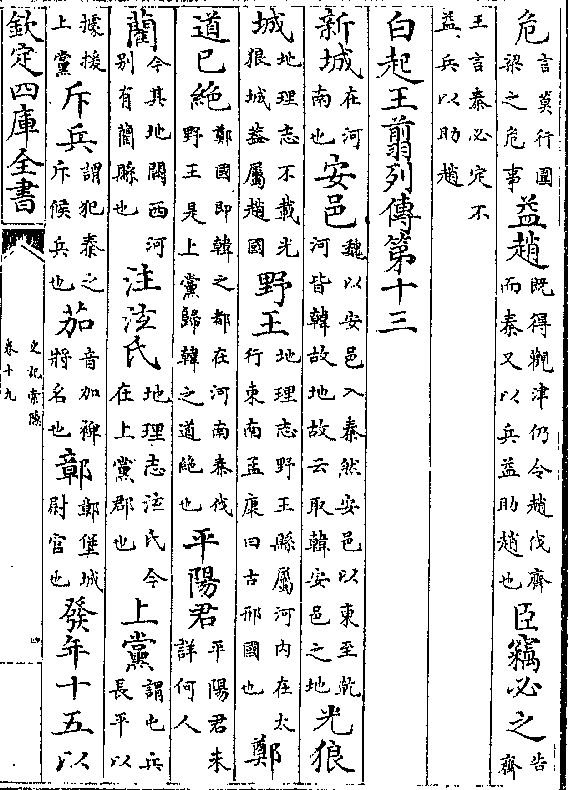 危言莫行圍梁之危事益趙既得觀津仍令趙伐齊而秦又以兵益助趙也臣竊必之告齊
王言秦必定不益兵以助趙
白起王翦列傳第十三
新城在河南也安邑魏以安邑入秦然安邑以東至乾河皆韓故地故云取韓安邑之地光狼
城地理志不載光狼城蓋屬趙國野王地理志野王縣屬河內在太行東南孟康曰古邢國也鄭
道已絕鄭國即韓之都在河南秦伐野王是上黨歸韓之道絕也平陽君平陽君未詳何人
藺今其地闕西河別有藺縣也注泫氏地理志泫氏今在上黨郡也上黨謂屯兵長平以
據援上黨斥兵謂犯秦之斥候兵也茄音加裨將名也鄣鄣堡城尉官也發年十五以
欽定四庫全書
史記索隱
卷十九
四